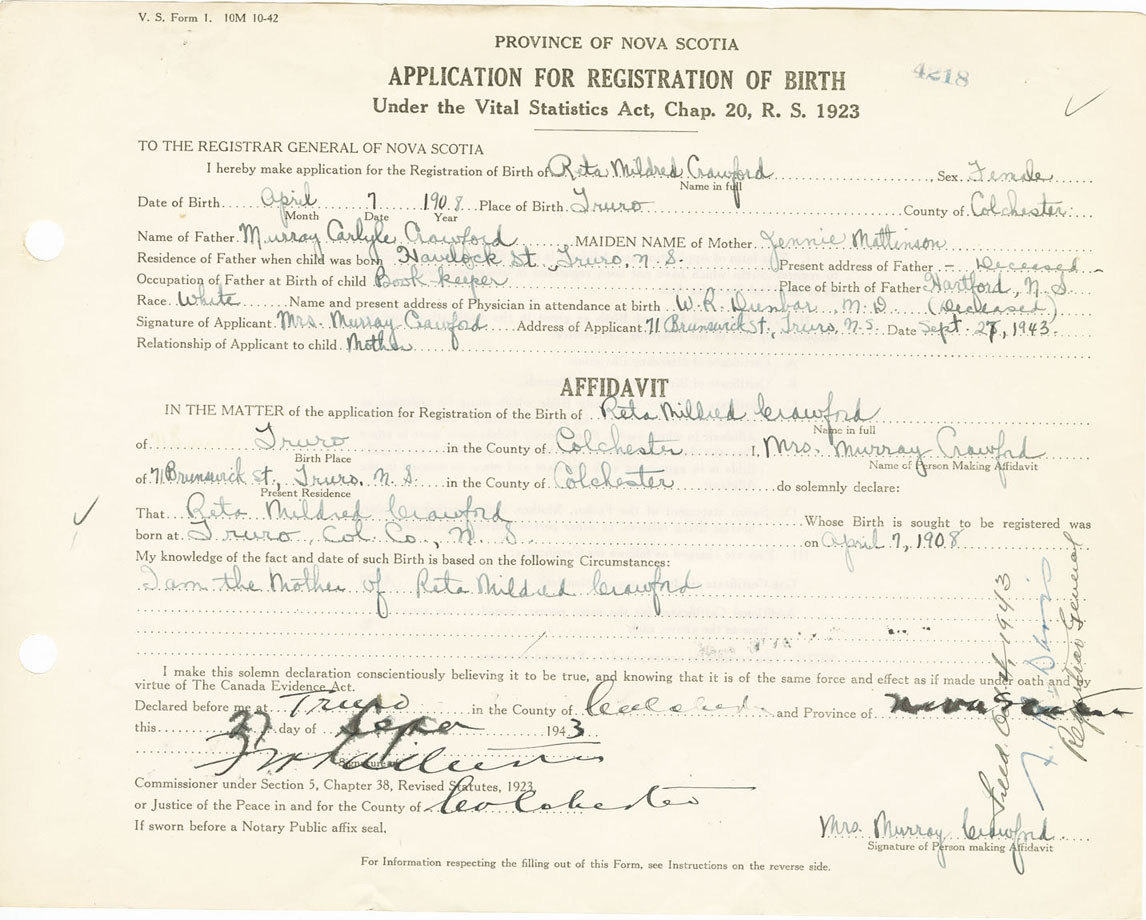 V. S. Form 1. 10M 10-42
PROVINCE OF NOVA SCOTIA
4218
APPLICATION FOR REGISTRATION OF BIRTH
Under the Vital Statistics Act, Chap. 20, R. S. 1923
TO THE REGISTRAR GENERAL OF NOVA SCOTIA
I hereby make application for the Registration of Birth of Reta Mildred Crawford Sex Female
Name in full
Date of Birth April 7 1908 Place of Birth Truro County of Colchester
Month Date Year
Name of Father Murray Carlyle Crawford MAIDEN NAME of Mother Jennie Mattinson
Residence of Father when child was born Havelock St., Truro, N. S. Present address of Father - Deceased -
Occupation of Father at Birth of child Book-keeper Place of birth of Father Hartford, N. S.
Race White Name and present address of Physician in attendance at birth W. R. Dunbar, M. D. (Deceased)
Signature of Applicant Mrs. Murray Crawford Address of Applicant 71 Brunswick St., Truro, N.S. Date Sept. 27, 1943.
Relationship of Applicant to child Mother
AFFIDAVIT
IN THE MATTER of the application for Registration of the Birth of Reta Mildred Crawford
Name in full
of Truro in the County of Colchester I, Mrs. Murray Crawford
Birth Place Name of Person Making Affidavit
of 71 Brunswick St., Truro, N. S. in the County of Colchester do solemnly declare:
Present Residence
That Reta Mildred Crawford Whose Birth is sought to be registered was
born at Truro, Col. Co., N. S. on April 7, 1908
My knowledge of the fact and date of such Birth is based on the following Circumstances:
I am the Mother of Reta Mildred Crawford
I make this solemn declaration conscientiously believing it to be true, and knowing that it is of the same force and effect as if made under oath and by
virtue of The Canada Evidence Act.
Declared before me at Truro in the County of Colchester and Province of Nova Scotia
this 27 day of Sept 1943
Signature
Commissioner under Section 5, Chapter 38, Revised Statutes, 1923
or Justice of the Peace in and for the County of Colchester
If sworn before a Notary Public affix seal.
Mrs. Murray Crawford
Signature of Person making Affidavit
For Information respecting the filling out of this Form, see Instructions on the reverse side.
Filed Oct 1, 1943
Registrar General